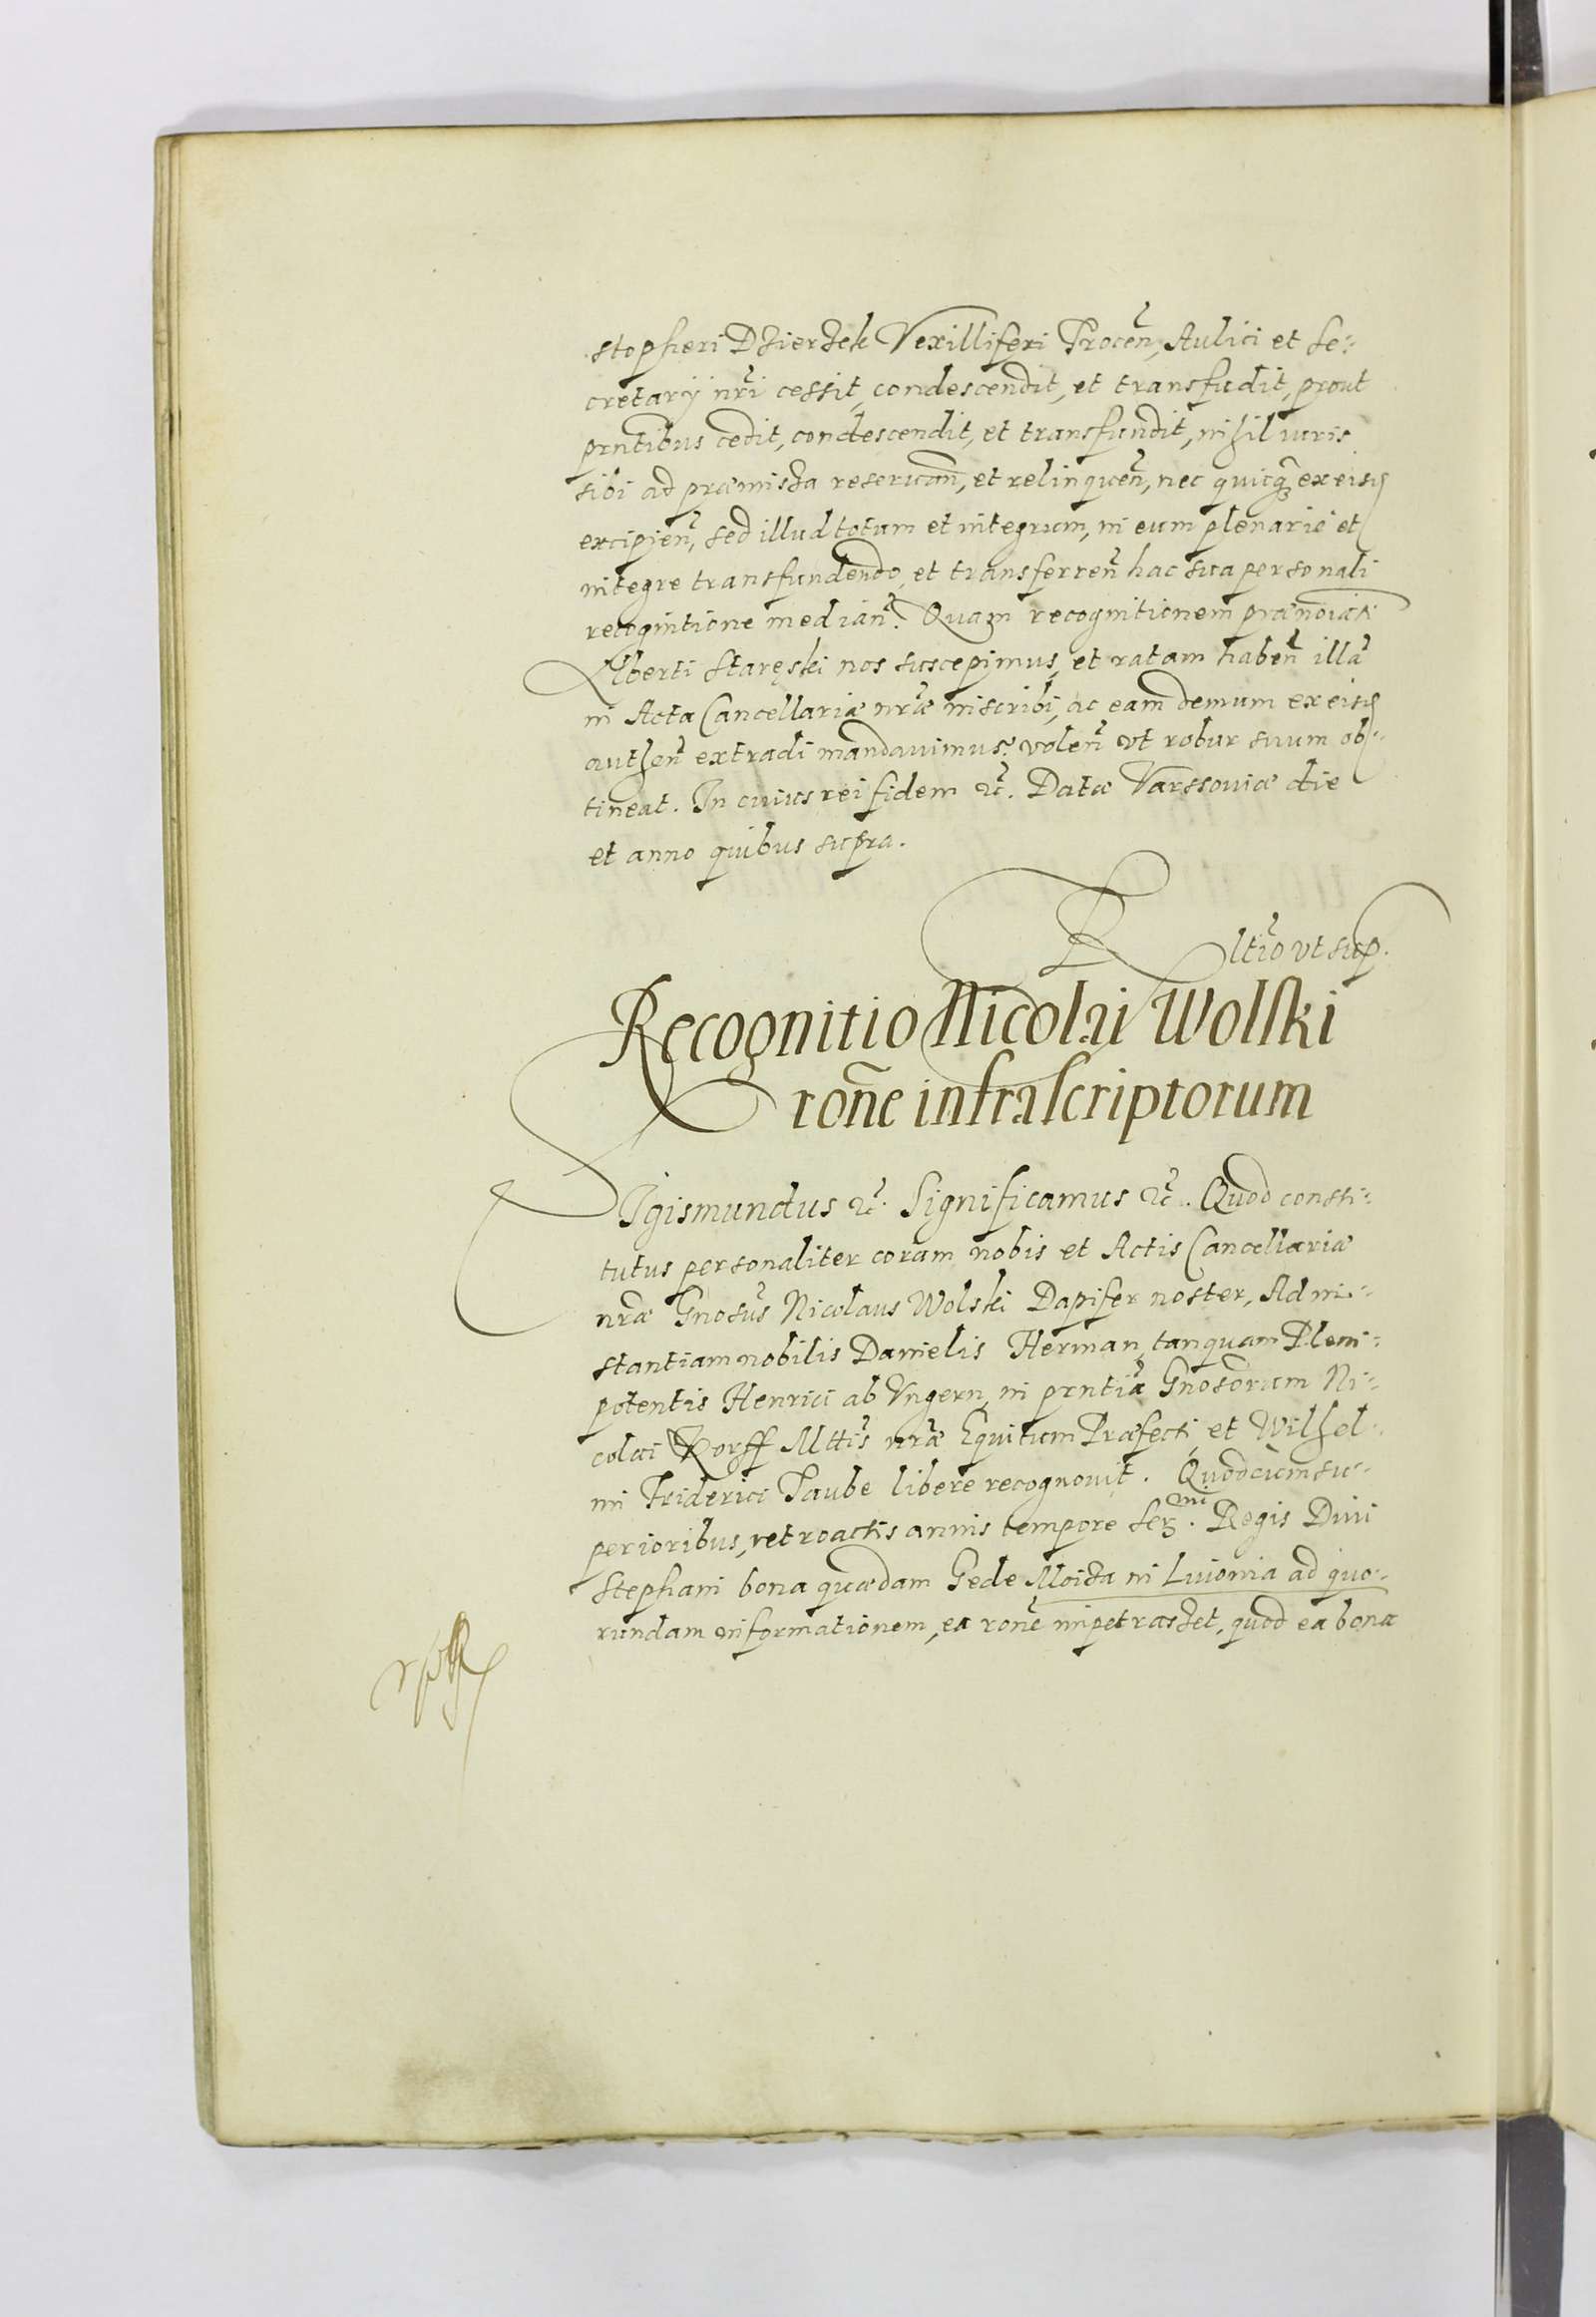 stopheri Dzierzek Vexilliferi Trocen̄, Aulici et Se-
cretarÿ nr̃i cessit, condescendit, et transfudit, prout
prntibus cedit, condescendit, et transfundit, nihil iuris
sibi ad præmissa reseruan̄, et relinquen̄, nec quicq̃ȝ ex eisd
excipien̄, sed illud totum et integrum, in eum plenarie et
integre transfundendo, et transferren̄ hac sua personali
recognitione median̄. Quam recognitionem prænoīati
Alberti Staręski nos suscepimus, et ratam haben̄ illā
in Acta Cancellariæ nr̃æ inscribi, ac eam demum ex eisd
authen̄ extradi mandauimus. volen̄ vt robur suum ob-
tineat. In cuius rei fidem etc̃. Datæ Varssouiæ die
et anno quibus supra.
R ltĩo vt sup.
Recognitio Nicolai Wolski
rone infrascriptorum
Sigismundus etc̃. Significamus etc̃. Quod consti-
tutus personaliter coram nobis et Actis Cancellariæ
nr̃æ Gnosus Nicolaus Wolski Dapifer noster, Ad in-
stantiam nobilis Danielis Herman, tanquam Pleni-
potentis Henrici ab Vngern, in prntiā Gnosorum Ni-
colai Korff Mttis nr̃æ Equitum Præfecti, et Wilhel-
mi Friderici Taube libere recognouit. Quod cum su-
perioribus, retroactis annis tempore Serᵐⁱ. Regis Diui
Stephani bona quædam Gede Moiza in Liuonia ad quo-
rundam informationem, ea rone impetrasset, quod ea bona